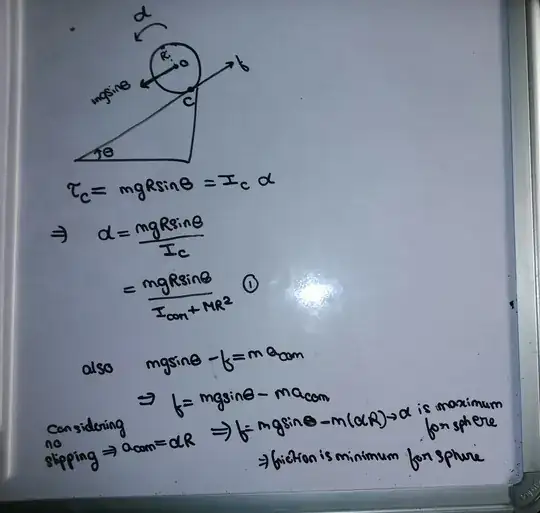 α
R
O
mgsinθ
f
C
θ
τ_C = mgRsinθ = I_C α
⇒ α = mgRsinθ / I_C
= mgRsinθ / I_com + MR² ①
also mgsinθ - f = m a_com
⇒ f = mgsinθ - m a_com
Considering no slipping ⇒ a_com = αR ⇒ f = mgsinθ - m(αR) → α is maximum for sphere
⇒ friction is minimum for sphere